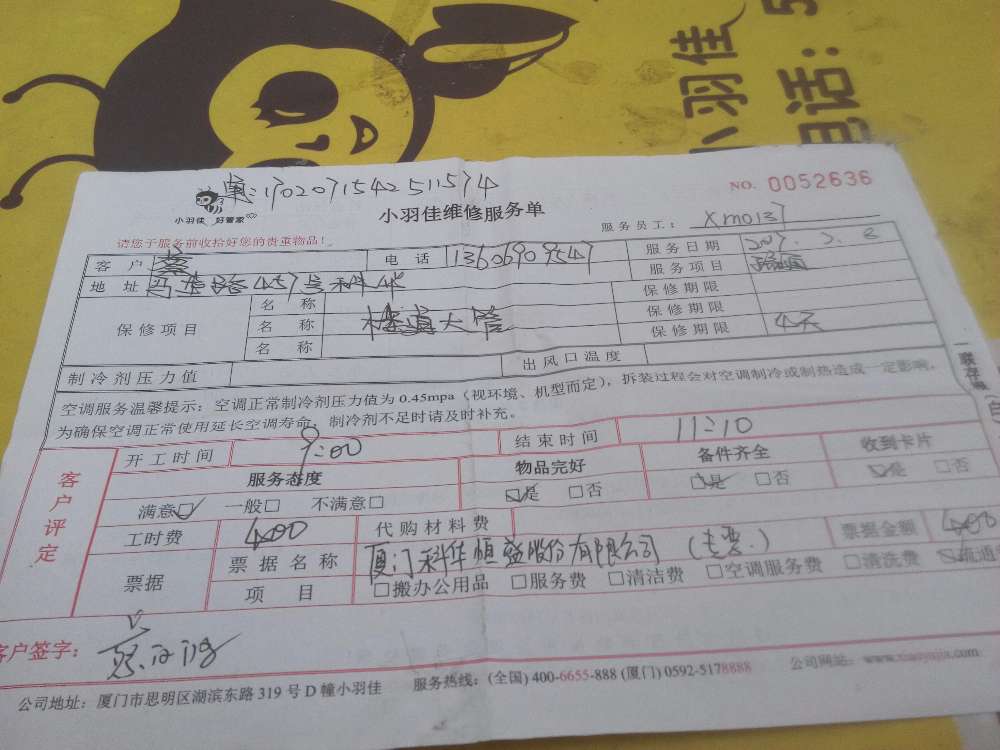 小羽佳
电话：5
170207154251574
NO. 0052636
小羽佳 好管家
小羽佳维修服务单
服务员工： Xm0137
请您于服务前收拾好您的贵重物品！
客户 电话 服务日期
地址 457号 服务项目
名称 保修期限
保修项目 名称 楼道大管 保修期限
名称 保修期限 4天
制冷剂压力值 出风口温度
空调服务温馨提示：空调正常制冷剂压力值为 0.45mpa（视环境、机型而定），拆装过程会对空调制冷或制热造成一定影响，
为确保空调正常使用延长空调寿命，制冷剂不足时请及时补充。
开工时间 9:00 结束时间 11:10
客户评定
服务态度 物品完好 备件齐全 收到卡片
满意☑ 一般□ 不满意□ ☑是 □否 ☑是 □否 ☑是 □否
工时费 400 代购材料费
票据 票据名称 厦门科华恒盛股份有限公司 票据金额 400
项目 □搬办公用品 □服务费 □清洁费 □空调服务费 □清洗费 ☑疏通
客户签字：
公司地址：厦门市思明区湖滨东路 319 号 D 幢小羽佳 服务热线：(全国) 400-6655-888 (厦门) 0592-5178888 公司网站：www.xiaoyujia.com